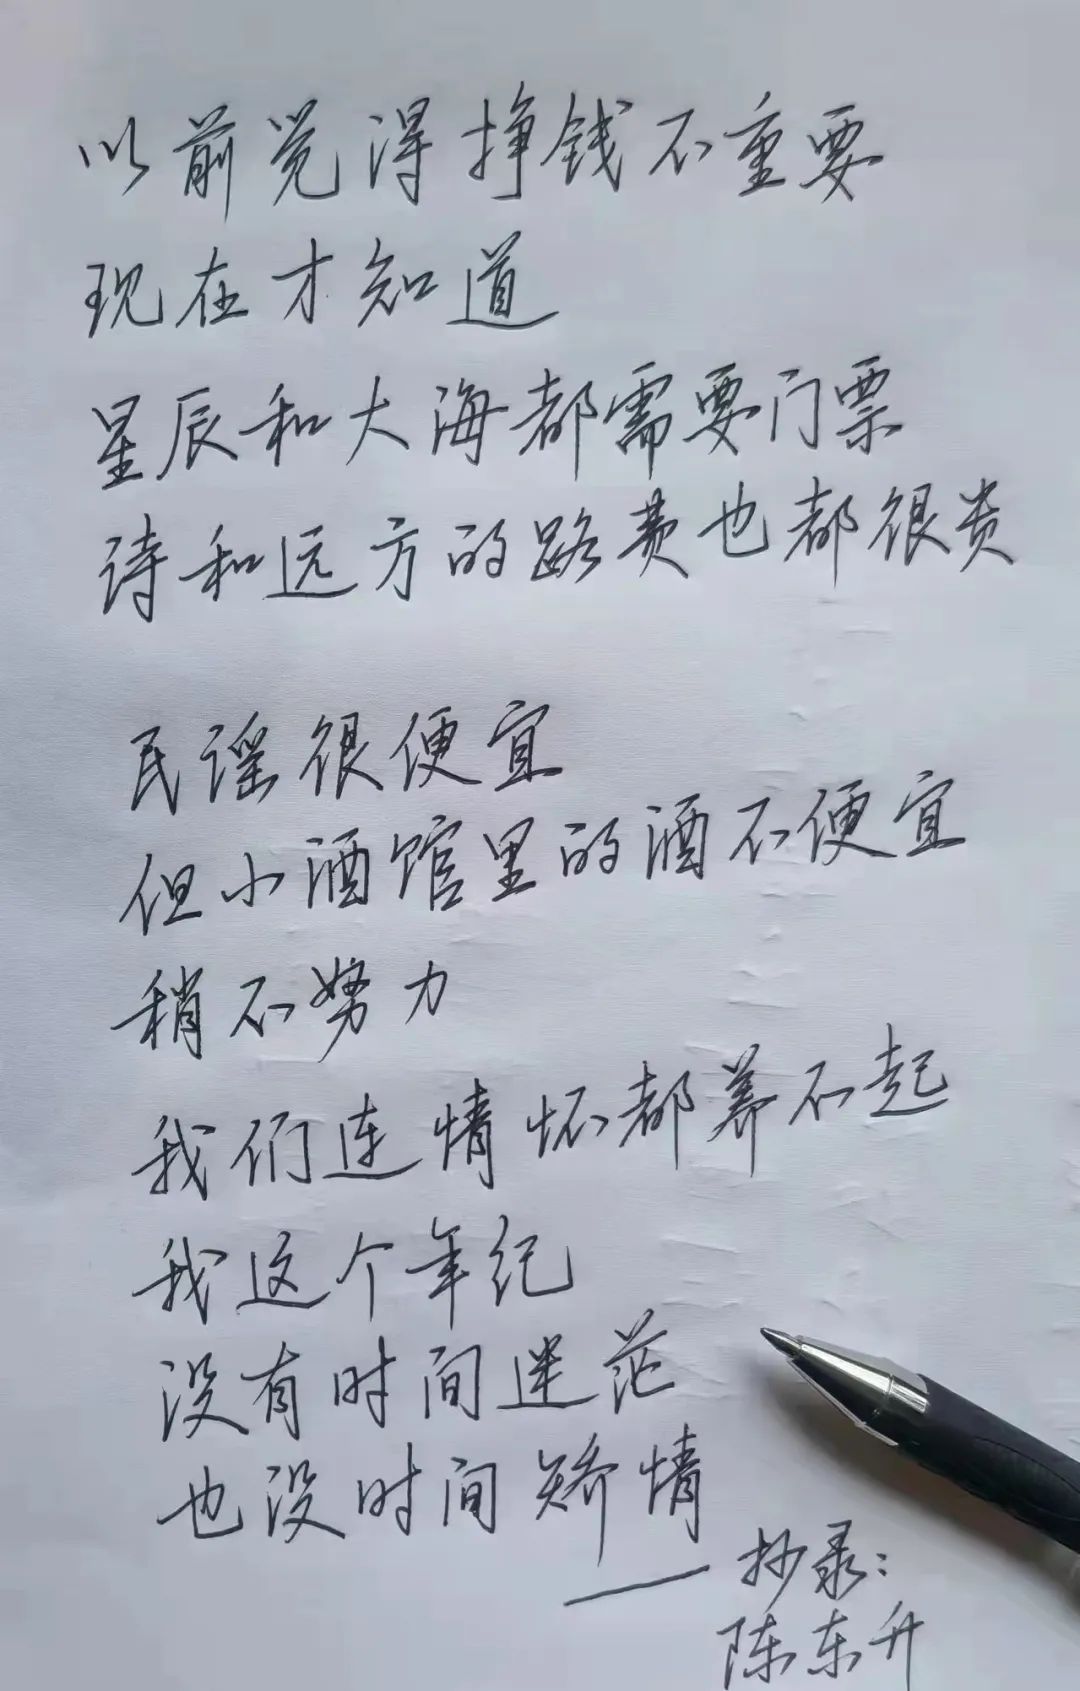 以前觉得挣钱不重要
现在才知道
星辰和大海都需要门票
诗和远方的路费也都很贵
民谣很便宜
但小酒馆里的酒不便宜
稍不努力
我们连情怀都养不起
我这个年纪
没有时间迷茫
也没时间矫情
——抄录：
陈东升